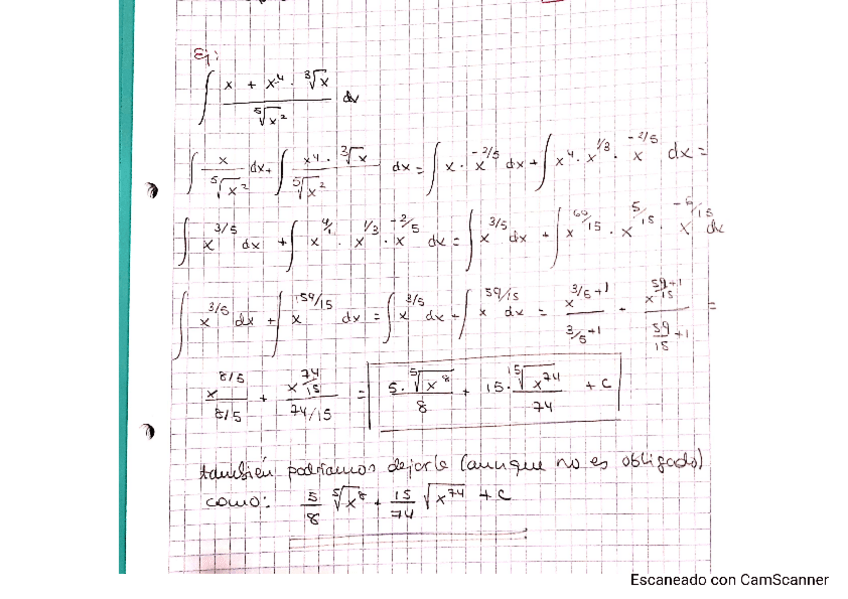 Ej:
∫ (x + x⁴ · ∛x) / ⁵√x² dx
∫ x / ⁵√x² dx + ∫ (x⁴ · ∛x) / ⁵√x² dx = ∫ x · x^(-2/5) dx + ∫ x⁴ · x^(1/3) · x^(-2/5) dx =
∫ x^(3/5) dx + ∫ x^(4/1) · x^(1/3) · x^(-2/5) dx = ∫ x^(3/5) dx + ∫ x^(60/15) · x^(5/15) · x^(-6/15) dx
∫ x^(3/5) dx + ∫ x^(59/15) dx = ∫ x^(3/5) dx + ∫ x^(59/15) dx = x^(3/5+1) / (3/5+1) + x^(59/15+1) / (59/15+1) =
x^(8/5) / (8/5) + x^(74/15) / (74/15) = 5 · ⁵√x⁸ / 8 + 15 · ¹⁵√x⁷⁴ / 74 + C
también podríamos dejarla (aunque no es obligado)
como: 5/8 ⁵√x⁸ + 15/74 √x⁷⁴ + C
Escaneado con CamScanner